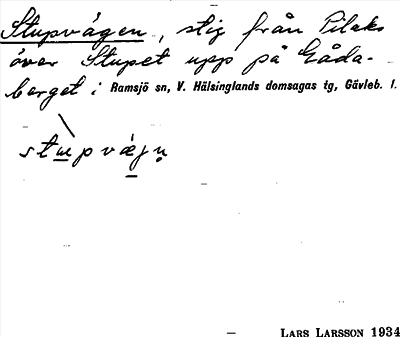 Stupvägen, stig från Pilaks
över Stupet upp på Låda-
berget i Ramsjö sn, V. Hälsinglands domsagas tg, Gävleb. l.
LARS LARSSON 1934